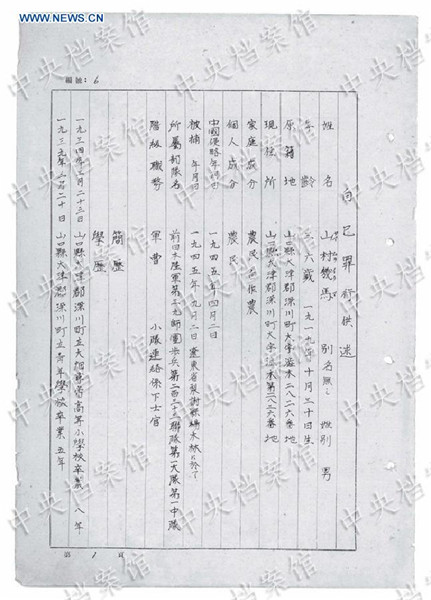 WWW.NEWS.CN
中央档案馆
編號: 6
自己罪行供述
姓名 山村幾馬 別名 無シ 性別 男
年齢 三六歳 一九一九年十月三十日生
原籍地 山口縣大津郡深川町大字深木二八二六番地
現住所 山口縣大津郡深川町大字深木第二八二六番地
家庭成分 農民 自作農
個人成分 農民
中國侵略年月日 一九四五年四月二日
被捕年月日 一九四五年九月二日
所屬部隊名 前四 陸軍第五九師團歩兵第二百二十三聯隊第一大隊第一中隊
階級職務 軍曹 小隊連絡係下士官
簡歴
學歴
一九三四年三月二十三日 山口縣大津郡深川町立大 尋常高等小學校卒業 八年
一九三九年 月二十日 山口縣大津郡深川町立青年學校卒業 五年
第 1 頁